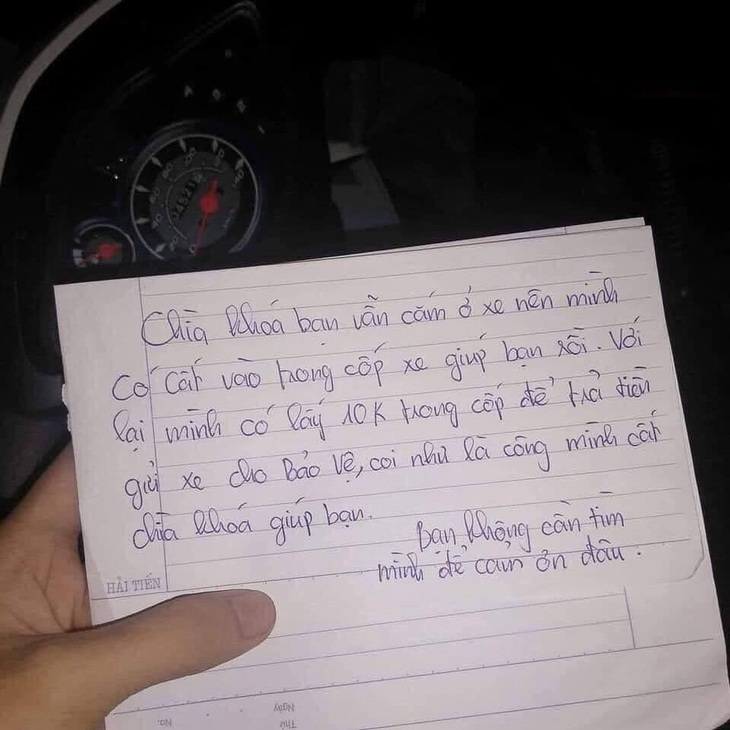 Chìa khoá bạn vẫn cắm ở xe nên mình
có cất vào trong cốp xe giúp bạn rồi. Với
lại mình có lấy 10K trong cốp để trả tiền
gửi xe cho bảo vệ, coi như là công mình cất
chìa khoá giúp bạn.
Bạn không cần tìm
mình để cảm ơn đâu.
HẢI TIẾN
Ngày
Thứ
No.